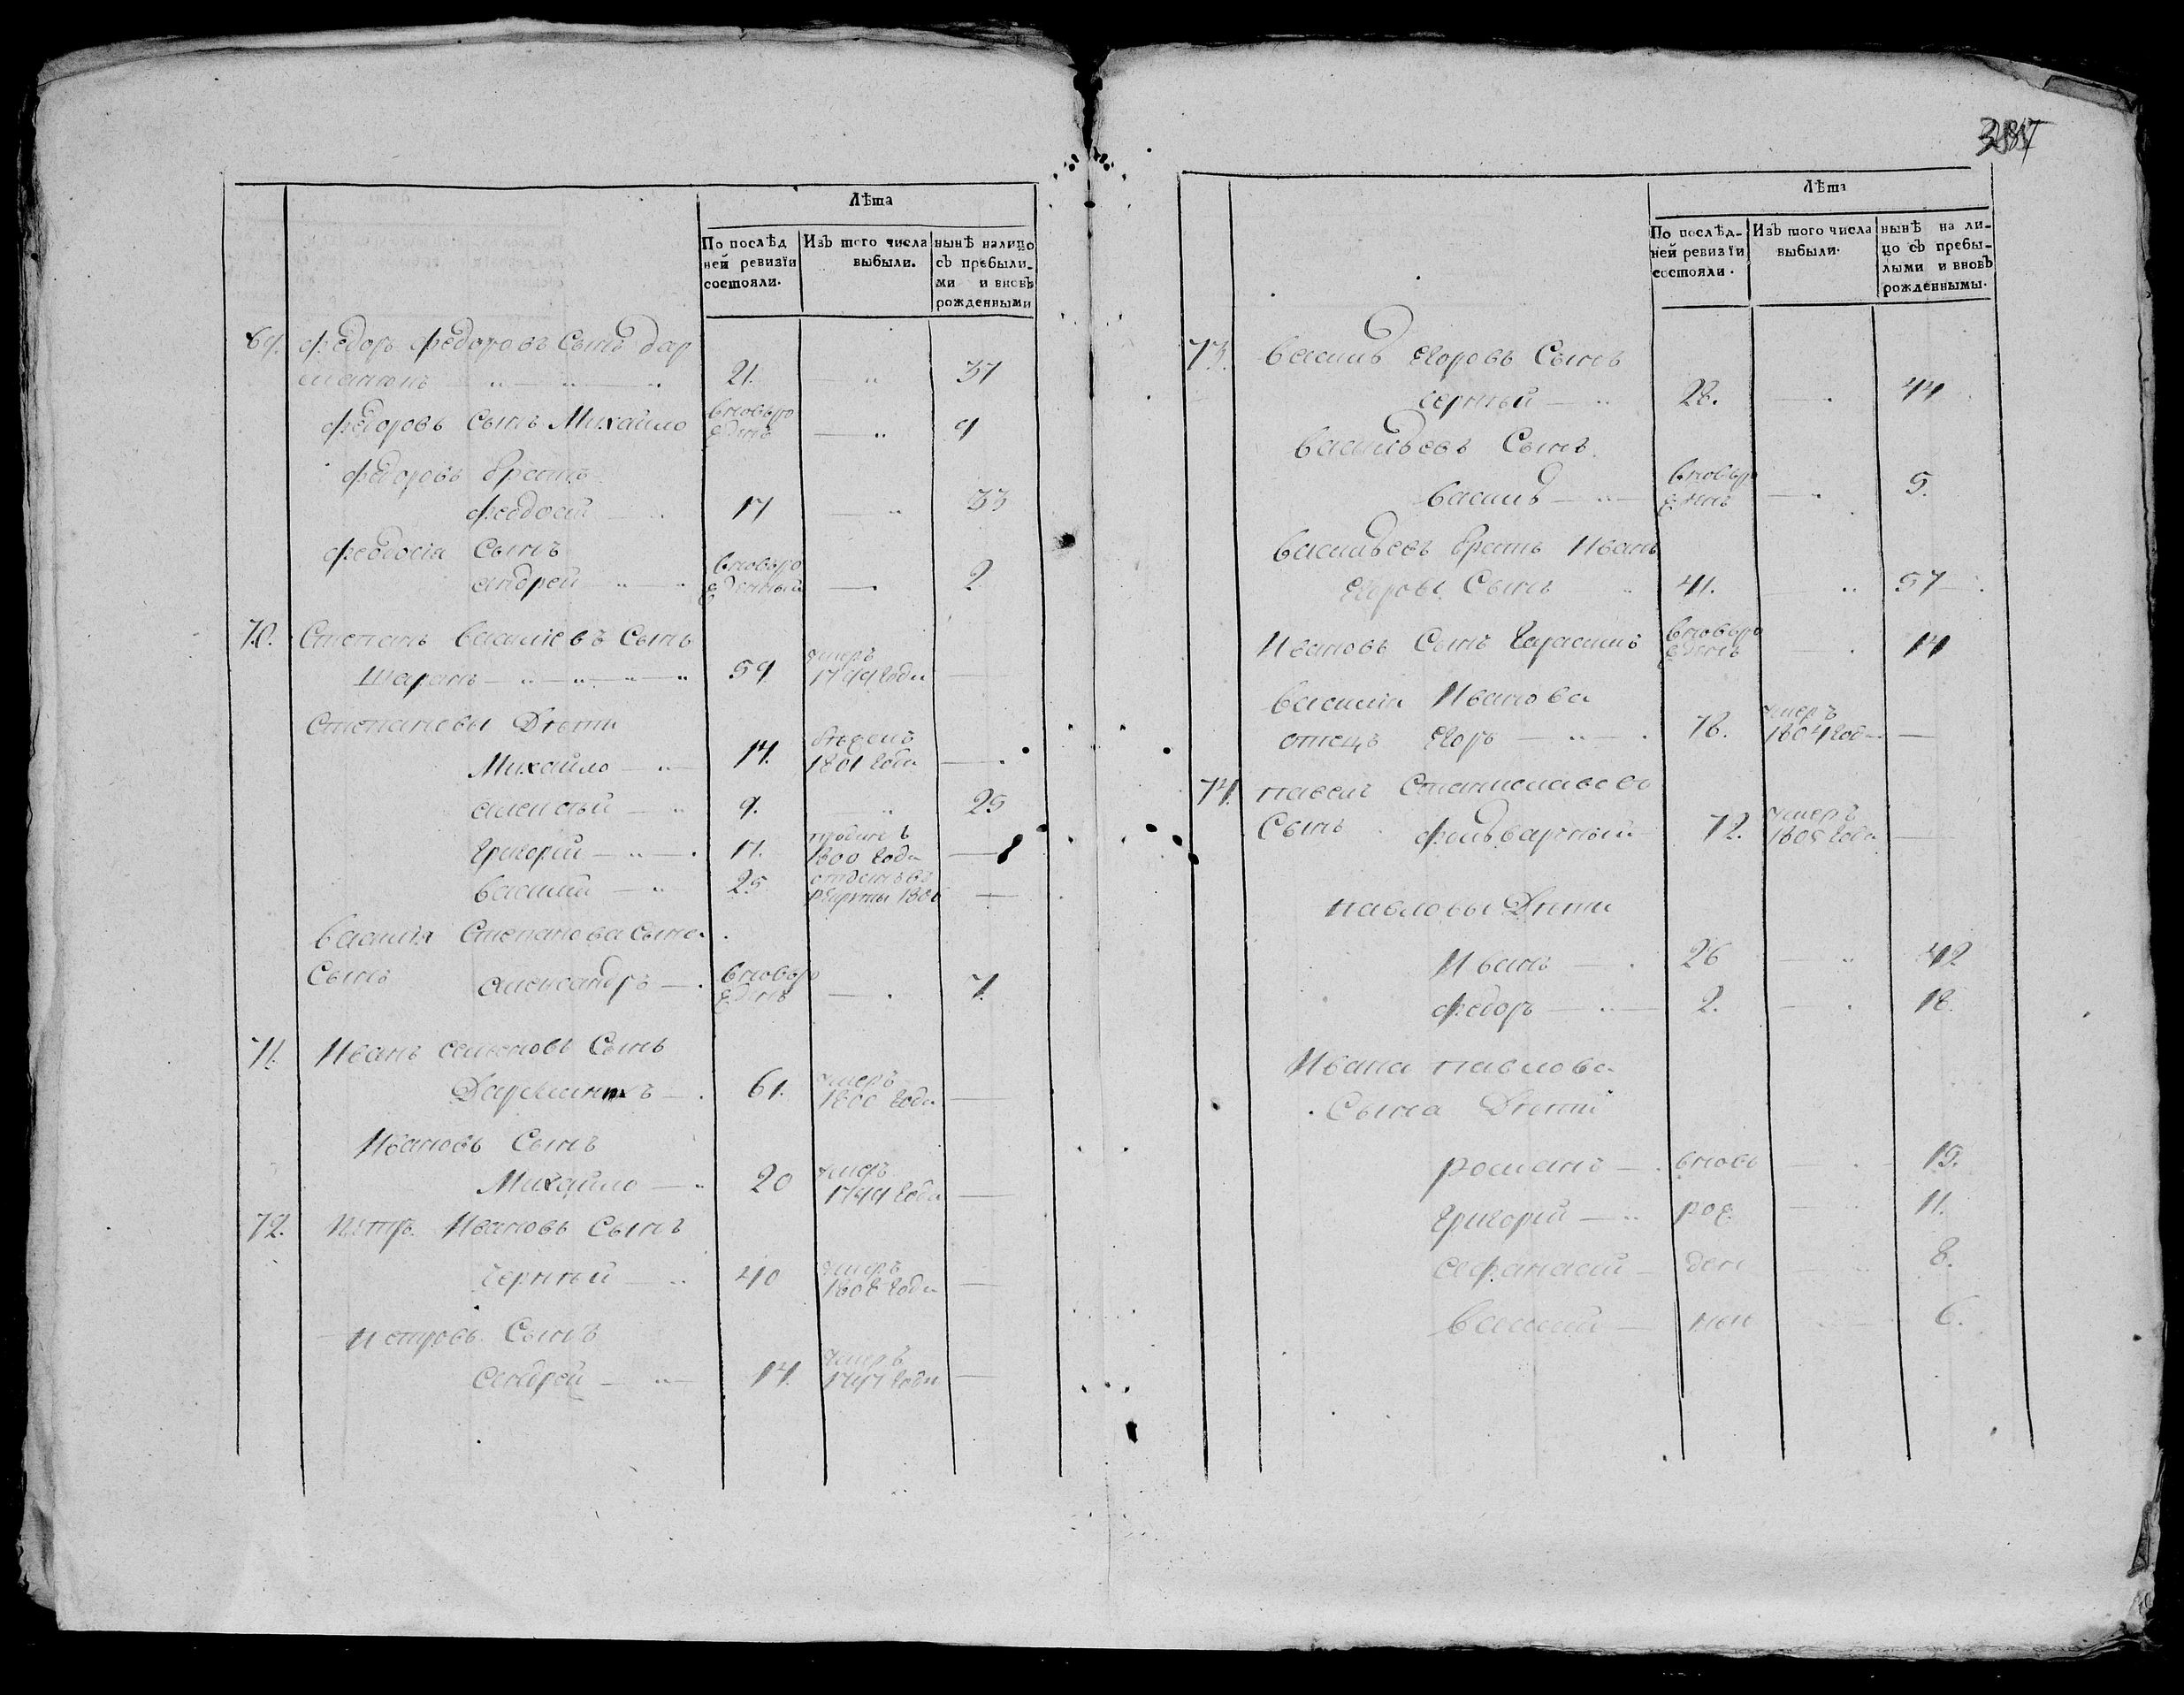 Лѣта
По послѣд
ней ревизїи
состояли.
Изъ того числа
выбыли.
нынѣ налицо
съ прибыли-
ми и вновь
рожденными
69. федоръ федоровъ Сынъ дар
21. 37
федоровъ Сынъ Михайло вновьро
жденъ 9
федоровъ братъ
феодосій 17 33
феодосія Сынъ
андрей вновьро
жденный 2
70. Степанъ василіевъ Сынъ
Шаранъ 59 умеръ
1799 года
Степановы Дѣти
Михайло 14. бѣжалъ
1801 года
алексѣй 9. 25
Григорій 11. 1800 года
василій 25. отданъ въ
рекруты 1806
василія Степанова сына
Сынъ александръ вновьро
жденъ 7.
71. Иванъ семеновъ Сынъ
61. умеръ
1800 года
Ивановъ Сынъ
Михайло 20 умеръ
1799 года
72. петръ Ивановъ Сынъ
Черный 40 умеръ
1808 года
петровъ Сынъ
андрей 14. умеръ
1797 года
Лѣта
По послѣд-
ней ревизїи
состояли.
Изъ того числа
выбыли.
нынѣ на ли-
цо съ прибы-
лыми и вновь
рожденнымы.
73. василь Егоровъ Сынъ
Черный 28. 44
васильевъ Сынъ
василь вновьро
жденъ 5.
васильевъ братъ Иванъ
Егоровъ Сынъ 41. 57
Ивановъ Сынъ Герасимъ вновьро
жденъ 14
василія Иванова
отецъ Егоръ 78. умеръ
1804 года
74. павелъ Станиславовъ
Сынъ фольварный 72. умеръ
1805 года
павловы Дѣти
Иванъ 26 42
федоръ 2. 18.
Ивана павлова
Сына Дѣти
романъ вновь 15.
Григорій рож 11.
афанасій ден 8.
василій ныи 6.